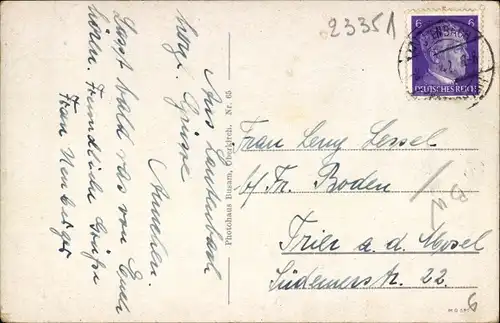 23351
6 6
DEUTSCHES REICH
Aus Lautenbach
herzl. Grüsse
Annchen.
Lasst bald was von Euch
hören. Freundliche Grüße
Frau Neuburger
Photohaus Busam, Oberkirch. Nr. 65
Frau Leny Lessel
b/Fr. Boden
Trier a. d. Mosel
Südennerstr. 22.
6